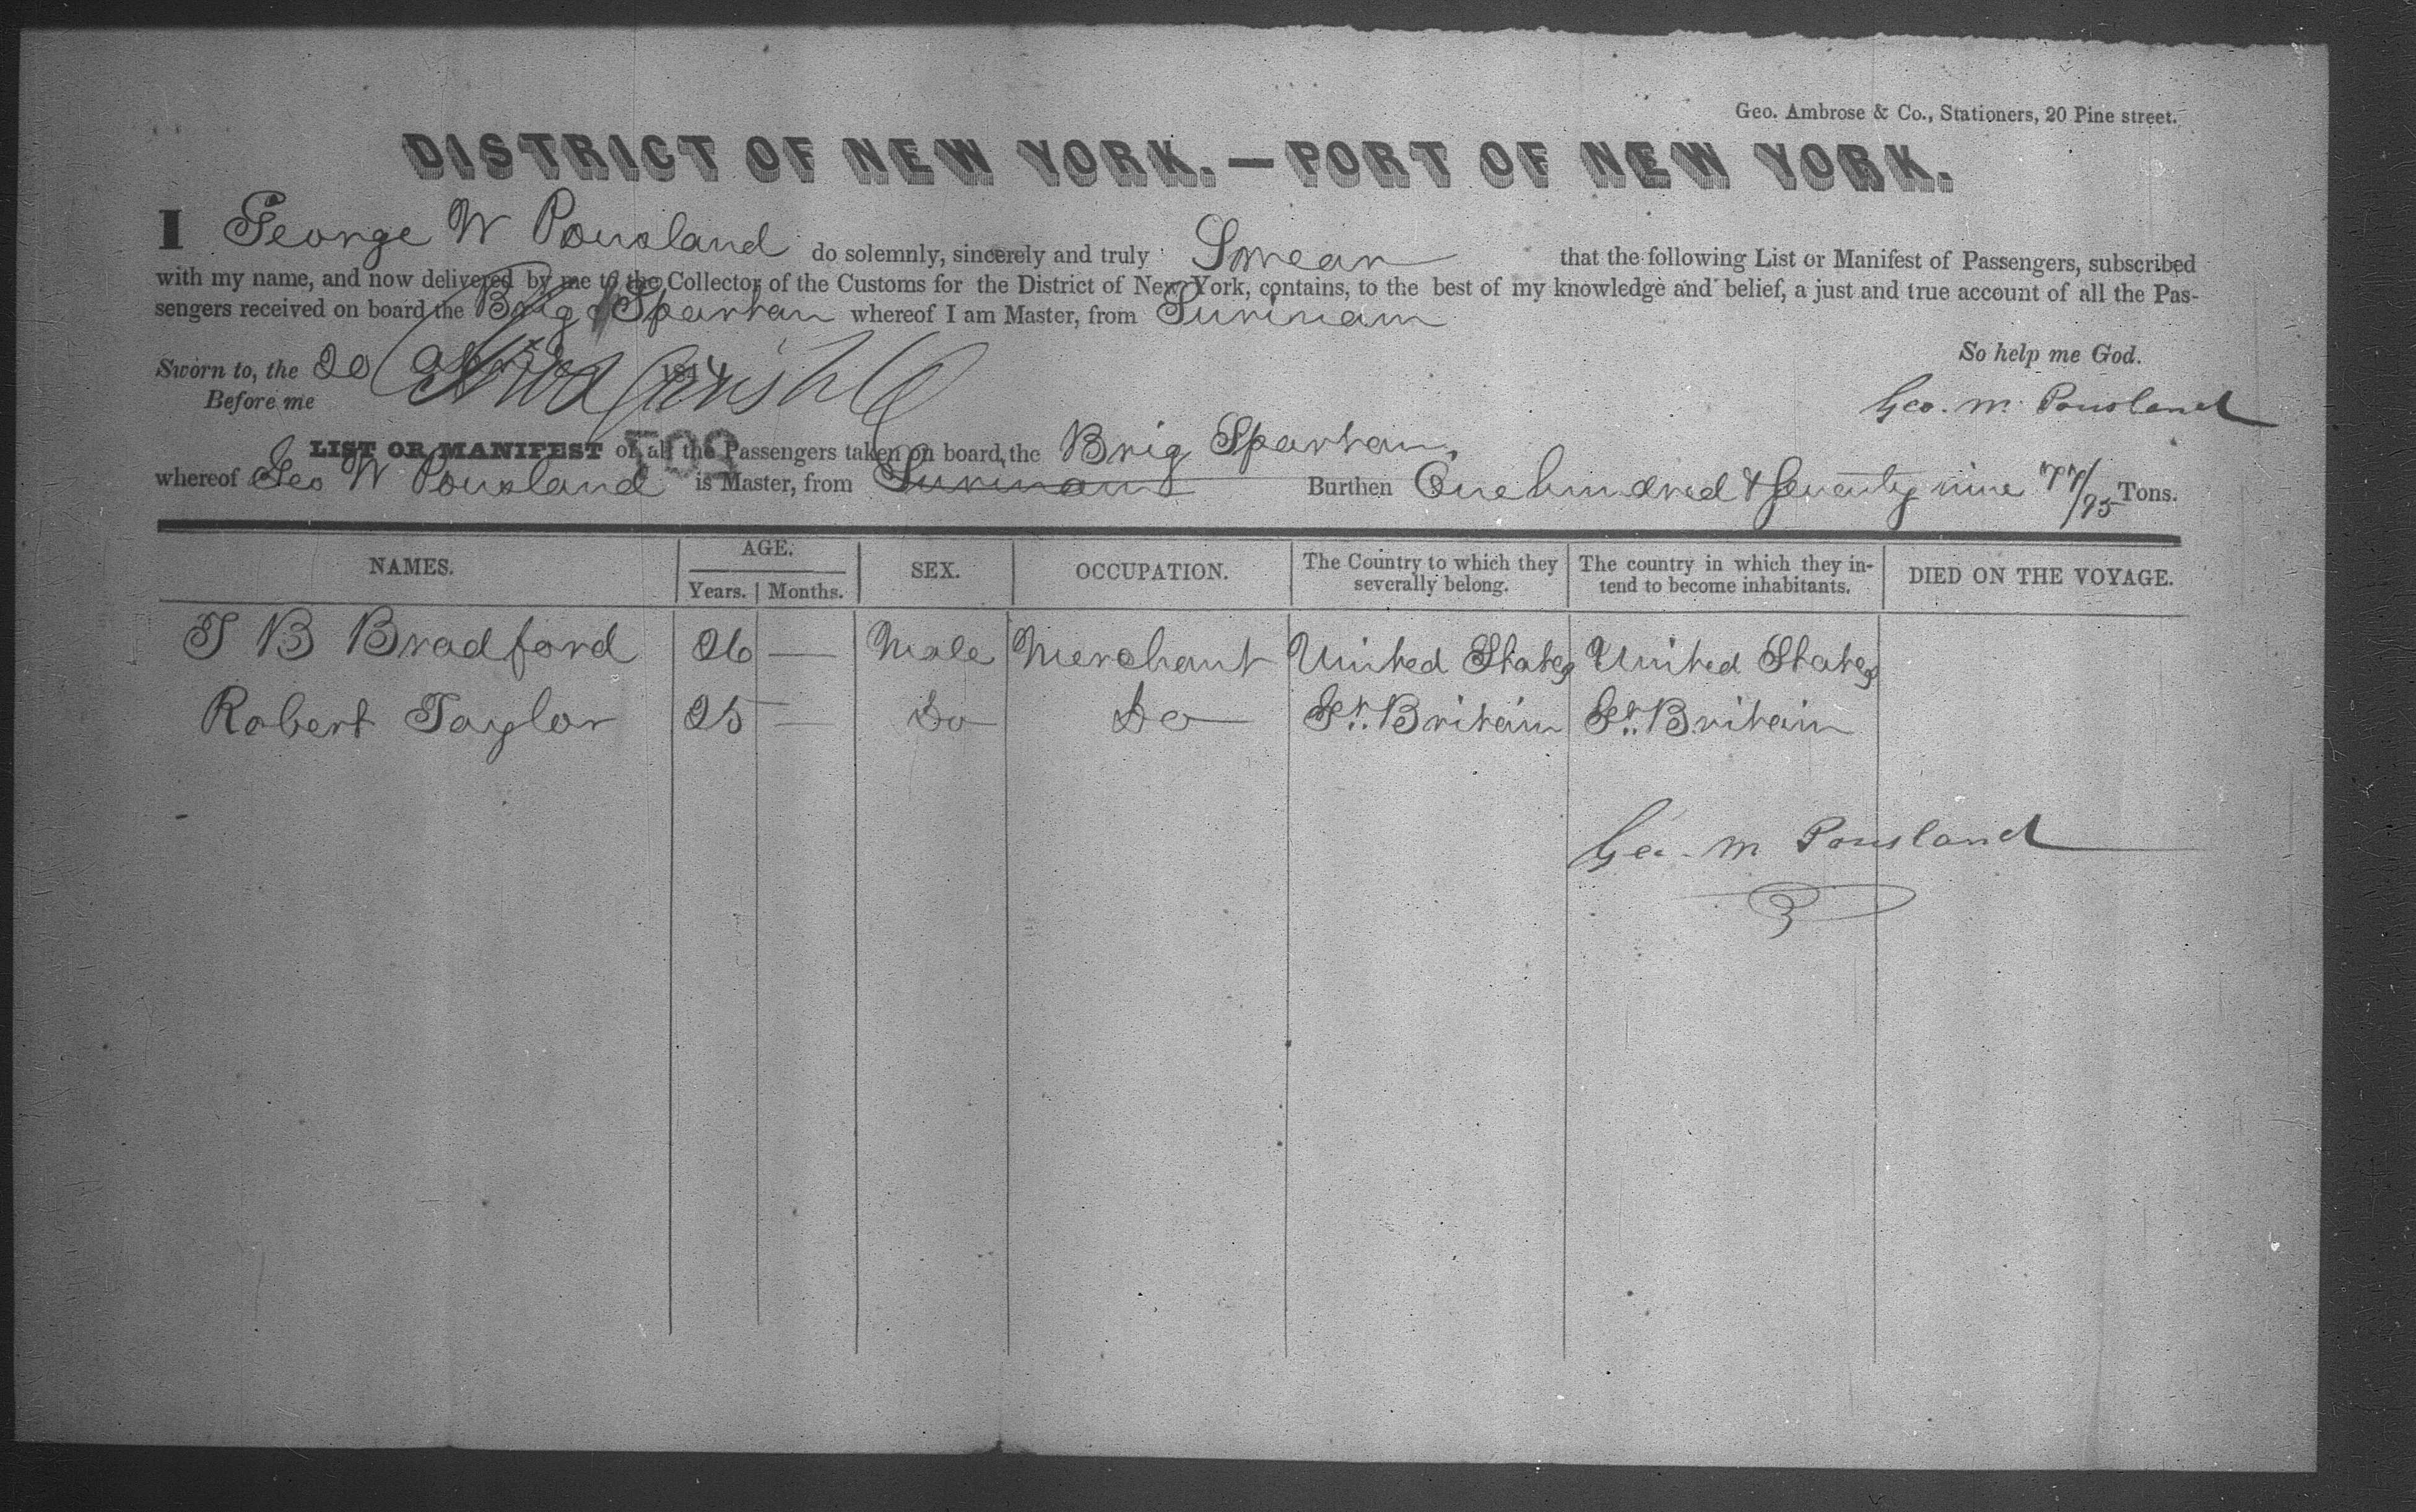 Geo. Ambrose & Co., Stationers, 20 Pine street.
DISTRICT OF NEW YORK.—PORT OF NEW YORK.
I George W Pousland do solemnly, sincerely and truly Swear that the following List or Manifest of Passengers, subscribed
with my name, and now delivered by me to the Collector of the Customs for the District of New York, contains, to the best of my knowledge and belief, a just and true account of all the Pas-
sengers received on board the Brig Spartan whereof I am Master, from Surinam
So help me God.
Sworn to, the 20 184
Before me
Geo. W. Pousland
LIST OR MANIFEST of all the Passengers taken on board, the Brig Spartan
whereof Geo W Pousland is Master, from Surinam Burthen One hundred & Seventy nine 77/95 Tons.
NAMES. AGE. Years. Months. SEX. OCCUPATION. The Country to which they severally belong. The country in which they in-tend to become inhabitants. DIED ON THE VOYAGE.
T B Bradford 26 — Male Merchant United States United States
Robert Taylor 25 — Do Do Gt. Britain Gt. Britain
Geo. W Pousland